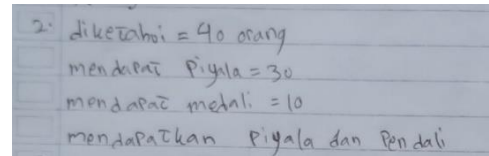 2. diketahoi = 40 orang
mendapat Piyala = 30
mendapat medali = 10
mendapatkan Piyala dan Pendali